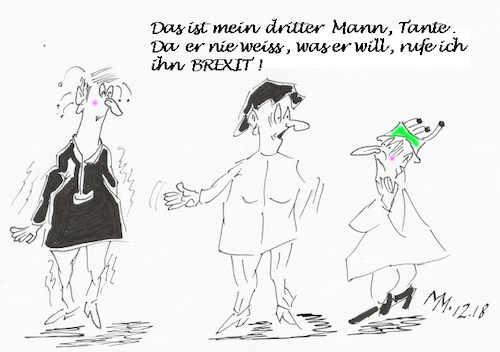 Das ist mein dritter Mann, Tante.
Da er nie weiss, was er will, rufe ich
ihn BREXIT!
MM.12.18